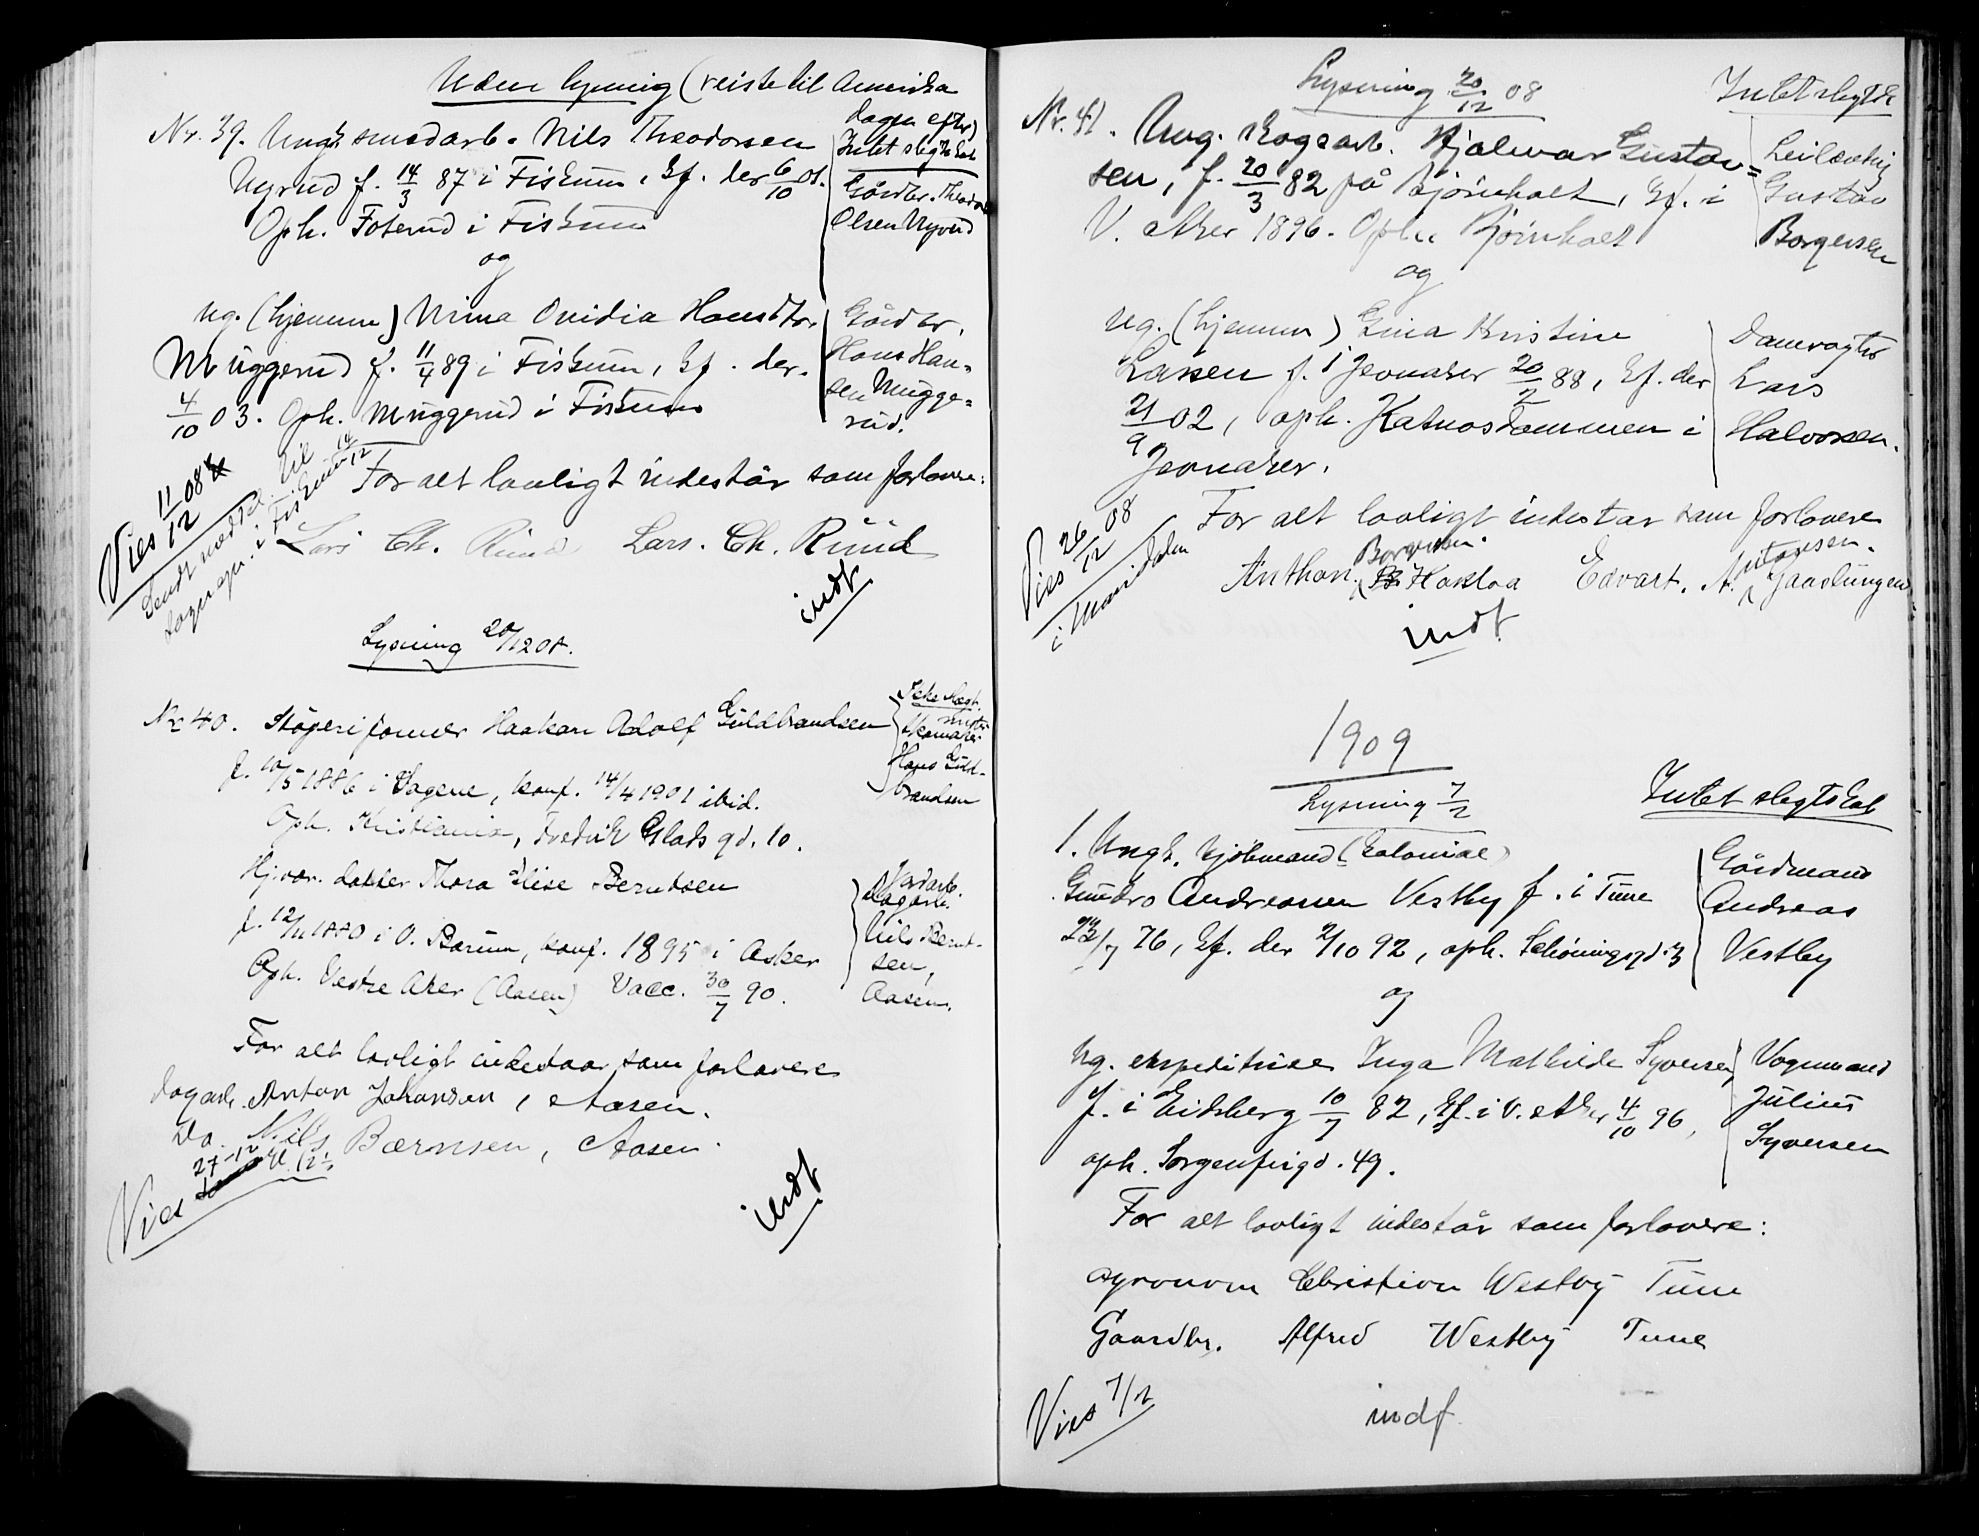 Uden lysning (reiste til Amerika
dagen efter)
Nr. 39. Ungk. smedarb. Nils Theodorsen
Intet slegtskab
Nyrud f. 14/3 87 i Fiskum, kf. der 6/10 01.
Gårdbr. Theodor
Oph. Foterud i Fiskum
Olsen Nyrud
og
ug. (hjemme) Mina Ovidia Hansdtr
Gårdbr.
Muggerud f. 11/4 89 i Fiskum, kf. der
Hans Han-
sen Mugge-
4/10 03. Oph. Muggerud i Fiskum
rud.
For alt lovligt indestår som forlovere:
Lars Ch. Ruud Lars. Ch. Ruud
Vies 11/12 08
Sendt melding til
sogneprest i Fiskum 14/12
indf
Lysning 20/12 08.
Nr 40. Støperiformer Haakon Adolf Guldbrandsen
Ikke slegt.
Skomaker
Hans Guld-
brandsen
f. 10/5 1886 i Sagene, konf. 14/4 1901 ibid.
Oph. Kristiania, Fredrik Glads gd. 10.
Hjvær. datter Thora Elise Berntsen
Jordarb.
Dagarb.
Nils Bernt-
sen,
Aasen.
f. 12/11 1880 i Ø. Bærum, konf. 1895 i Asker
Oph. Vestre Aker (Aasen) Vacc. 30/7 90.
For alt lovligt indestaar som forlovere
Dagarb. Anton Johansen, Aasen.
Do. Nils Bærnsen, Aasen.
Vies 27-12 kl. 12½
indf
Lysning 20/12 08
Intet slegtsk
Nr. 41. Ung. skogsarb. Hjalmar Gustav-
Leilænding
sen, f. 20/3 82 på Bjørnholt, kf. i
Gustav
V. Aker 1896. Oph. Bjørnholt
Borgersen
og
ug. (hjemme) Gina Kristine
Damvogter
Larsen f. i Jevnaker 20/2 88, kf. der
Lars
21/9 02, oph. Katnosdammen i
Halvorsen.
Jevnaker.
For alt lovligt indestar som forlovere
Anthon. Borgersen. Hakloa Edvart. A. Antonsen. Gaaslungen
Vies 26/12 08
i Maridalen
indf.
1909
Lysning 7/2
Intet slegtskab
1. Ungk. kjøbmand (kolonial)
Gårdmand
Gundro Andreasen Vestby f. i Tune
Andreas
23/7 76, kf. der 2/10 92, oph. Schøningsgd. 3
Vestby
og
ug. ekspeditrise Inga Mathilde Syversen
Vognmand
f. i Eidsberg 10/7 82, kf. i V. Aker 4/10 96,
Julius
Syversen
oph. Sorgenfrigd. 49.
For alt lovligt indestår som forlovere:
agronom Christian Westby Tune
Gaardbr. Alfred Westby Tune
Vies 7/2
indf